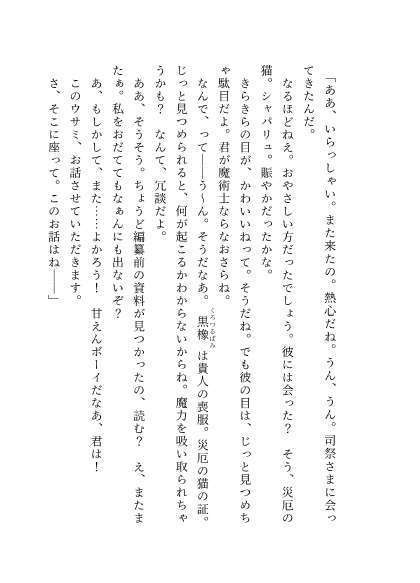 「ああ、いらっしゃい。また来たの。熱心だね。うん、うん。司祭さまに会っ
てきたんだ。
なるほどねえ。おやさしい方だったでしょう。彼には会った？　そう、災厄の
猫。シャパリュ。賑やかだったかな。
きらきらの目が、かわいいねって。そうだね。でも彼の目は、じっと見つめち
ゃ駄目だよ。君が魔術士ならなおさらね。
なんで、って――う〜ん。そうだなあ。黒橡は貴人の喪服。災厄の猫の証。
くろつるばみ
じっと見つめられると、何が起こるかわからないからね。魔力を吸い取られちゃ
うかも？　なんて、冗談だよ。
ああ、そうそう。ちょうど編纂前の資料が見つかったの、読む？　え、またま
たぁ。私をおだててもなぁんにも出ないぞ？
あ、もしかして、また……よかろう！　甘えんボーイだなあ、君は！
このウサミ、お話させていただきます。
さ、そこに座って。このお話はね――」